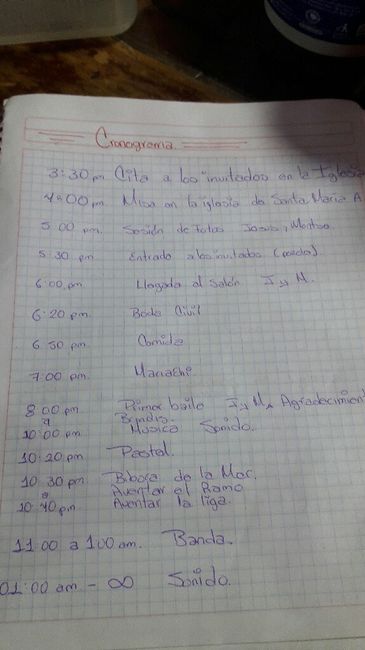 Cronograma
3:30 pm Cita a los invitados en la Iglesia
4:00 pm Misa en la iglesia de Santa Maria A
5:00 pm. Sesión de Fotos Josue y Montse
5:30 pm Entrada a los invitados (recida).
6:00 pm Llegada al Salón J y M.
6:20 pm Boda Civil
6:30 pm Comida
7:00 pm Mariachi
8:00 pm Primer baile J y M, Agradecimient
a Brindis.
10:00 pm Música Sonido.
10:20 pm Pastel.
10:30 pm Bibora de la Mar.
a Aventar el Ramo
10:40 pm Aventar la liga.
11:00 a 1:00 am. Banda.
01:00 am - ∞ Sonido.